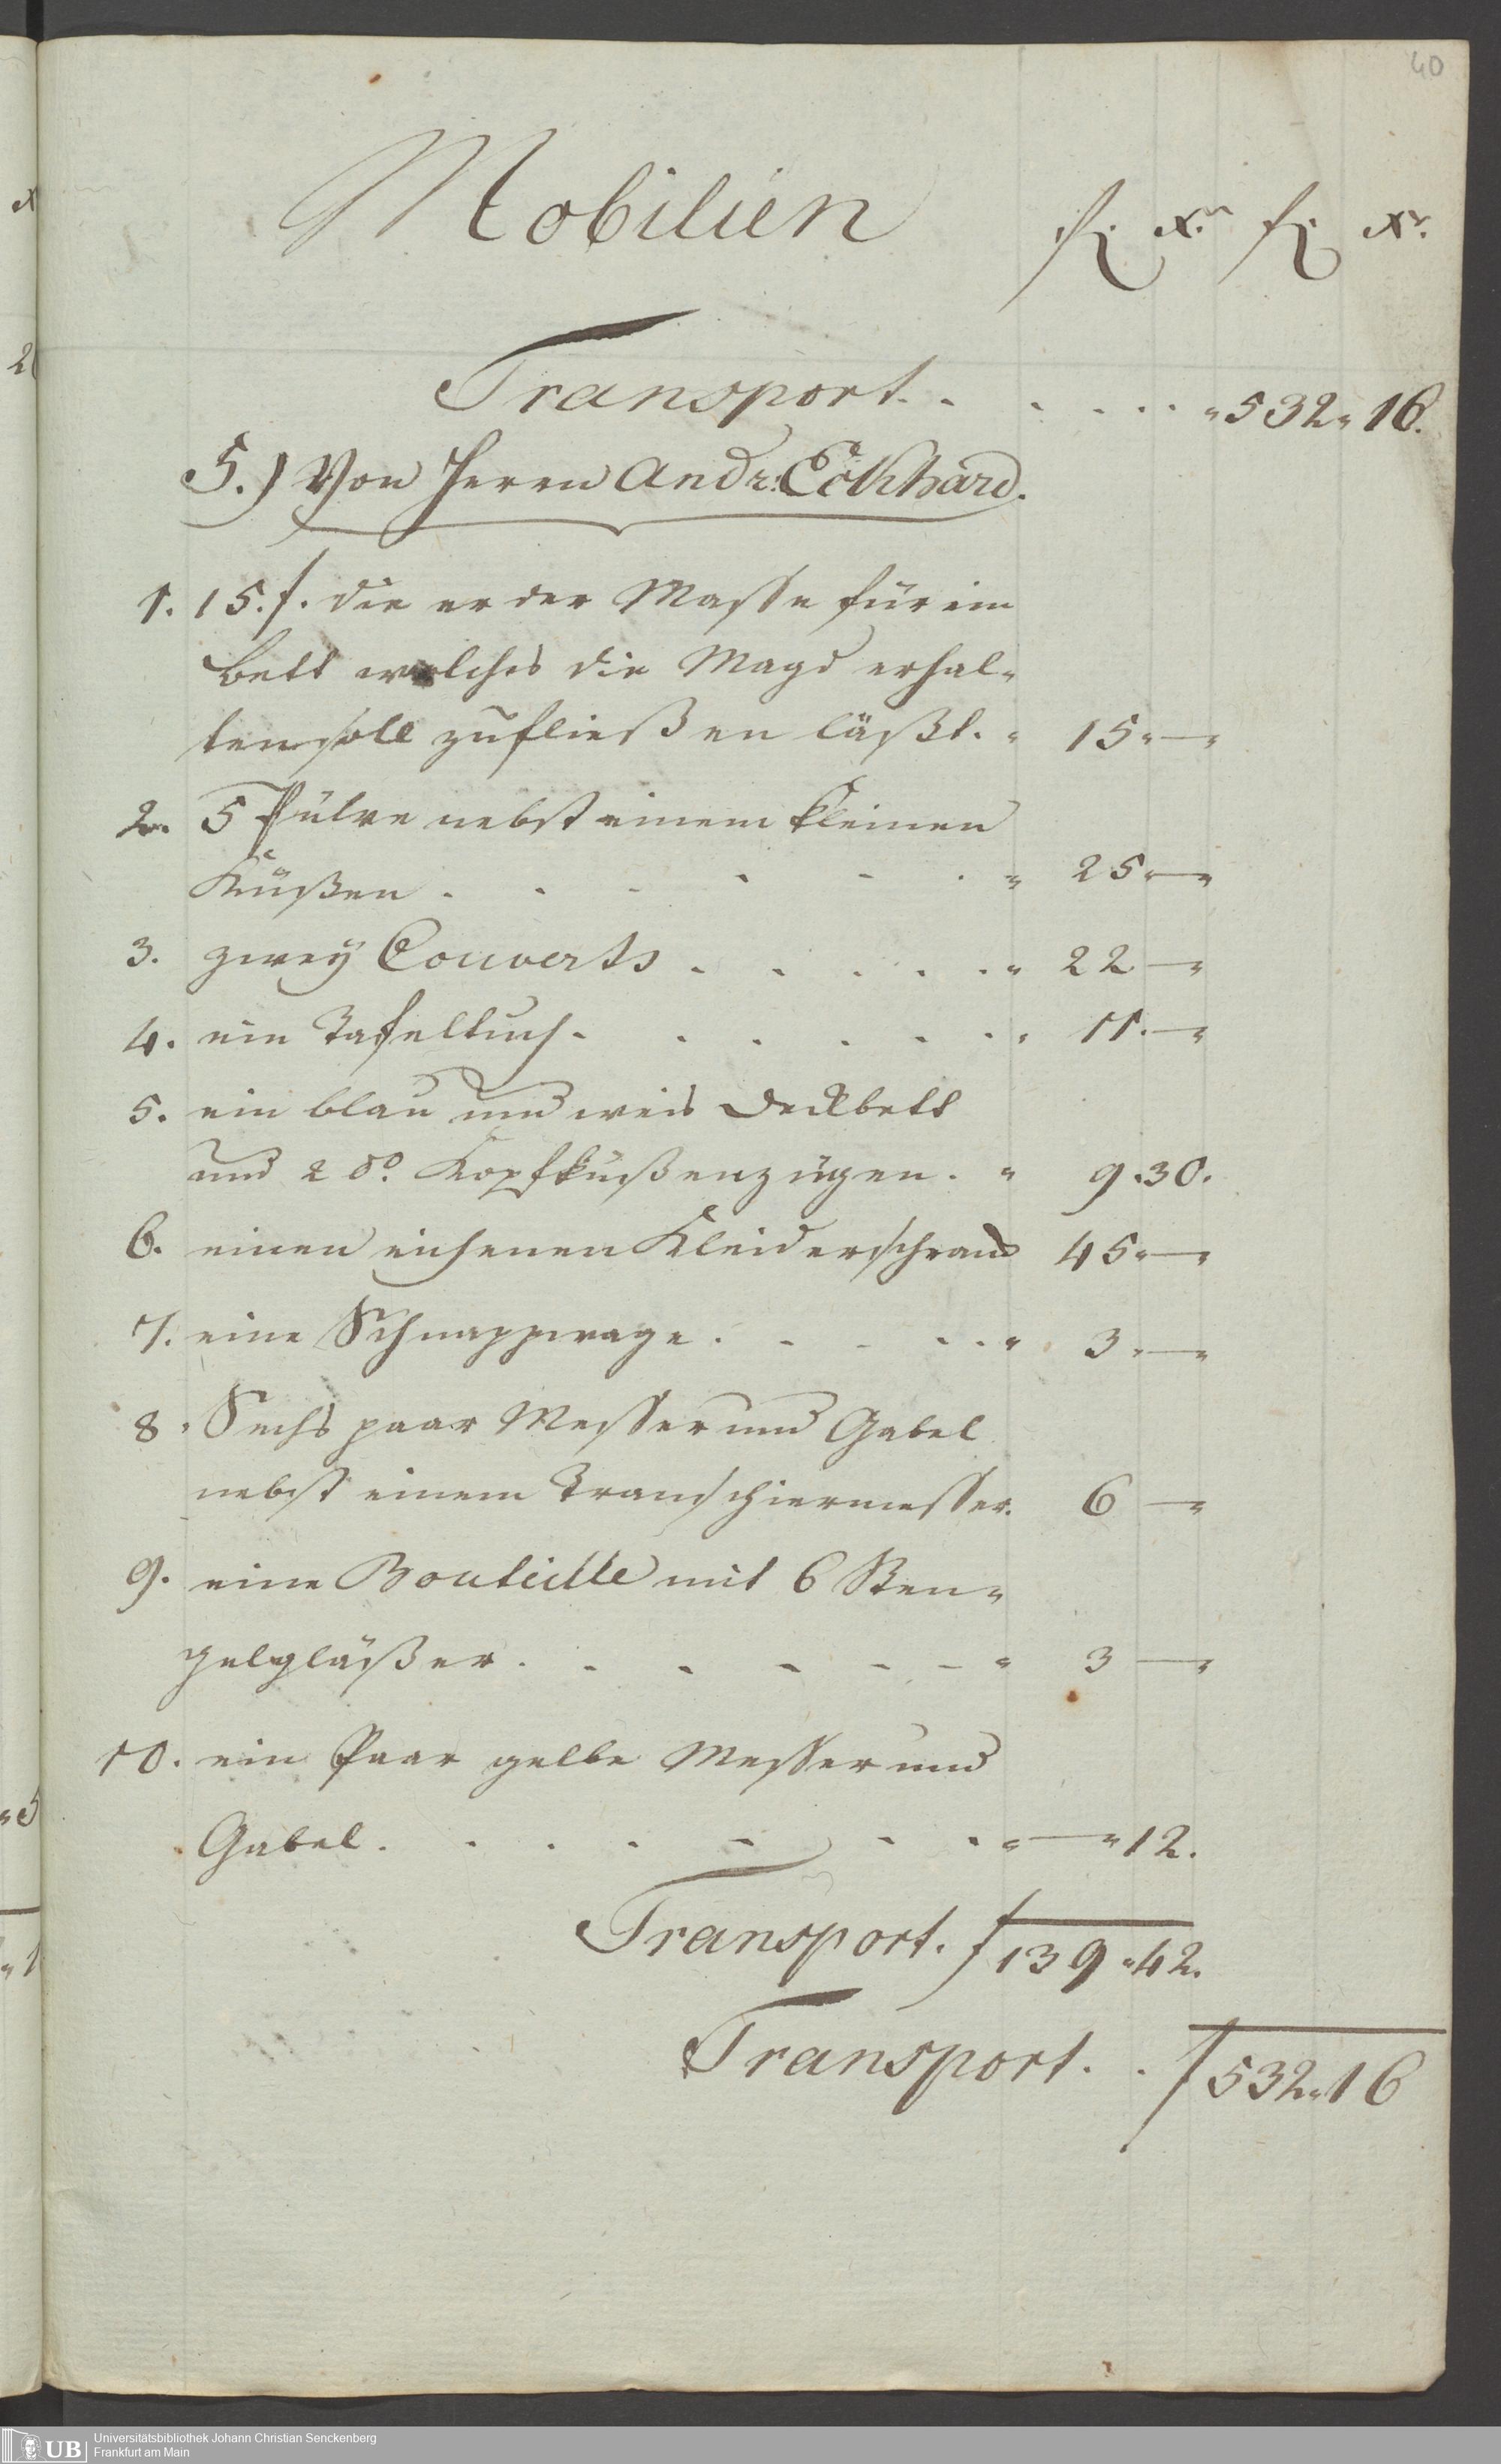 40
Mobilien fl. Xr. fl. Xr.
Transport. . . . . . . " 532 " 16.
5.) Von Herrn Andr: Eckhard.
1. 15. f. die er der Masse für ein
Bett welches die Magd erhal-
ten soll zufließen läßt. " 15 " — "
2. 5 Pülve nebst einem kleinen
Küßen . . . . . . " 25 " — "
3. zwey Couverts . . . . . " 22 — "
4. ein Tafeltuch . . . . . . " 11. — "
5. ein blau und weis Deckbett
und 2 do. Kopfküßenzügen. " 9 " 30.
6. einen eichenen Kleiderschrank 45 " — "
7. eine Schnappwage . . . . . " 3 " — "
8. Sechs paar Messer und Gabel
nebst einem Transchiermesser. 6 — "
9. eine Bouteille mit 6 Sten-
gelgläßer . . . . . . " 3 — "
10. ein Paar gelbe Messer und
Gabel . . . . . . . " — " 12.
Transport. f 139 " 42.
Transport. . f 532 " 16
UB Universitätsbibliothek Johann Christian Senckenberg
Frankfurt am Main